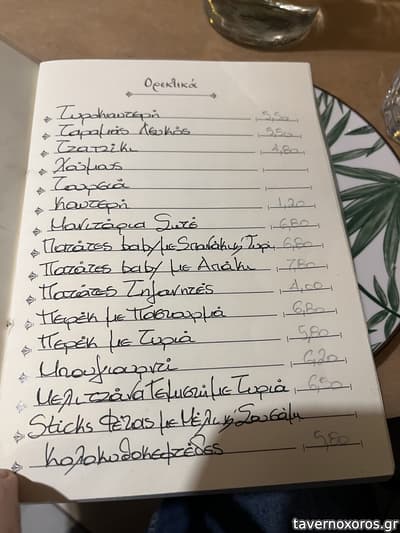 Ορεκτικά
Τυροκαυτερή 5,50
Ταραμάς Λευκός 5,50
Τζατζίκι 4,80
Χούμους
Τουρσιά
Καυτερή 1,20
Μανιτάρια Σωτέ 6,80
Πατάτες baby με Σπανάκι, Τυρί 6,80
Πατάτες baby με Απάκι 7,80
Πατάτες Τηγανητές 4,00
Περέκ με Παστουρμά 6,80
Περέκ με Τυριά 5,80
Μπουγιουρντί 6,20
Μελιτζάνα Γεμιστή με Τυριά 6,50
Sticks Φέτας με Μέλι, Σουσάμι
Κολοκυθοκεφτέδες 5,80
tavernoxoros.gr